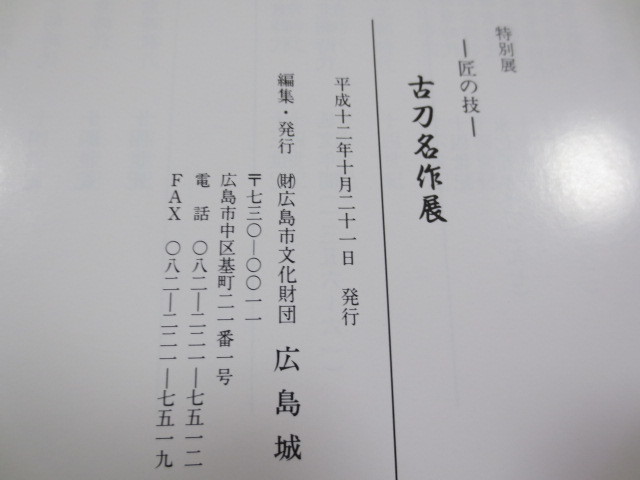 特別展
―匠の技―
古刀名作展
平成十二年十月二十一日　発行
編集・発行　㈶広島市文化財団　広島城
〒七三〇―〇〇一一
広島市中区基町二一番一号
電話　〇八二―二二一―七五一二
FAX　〇八二―二二一―七五一九